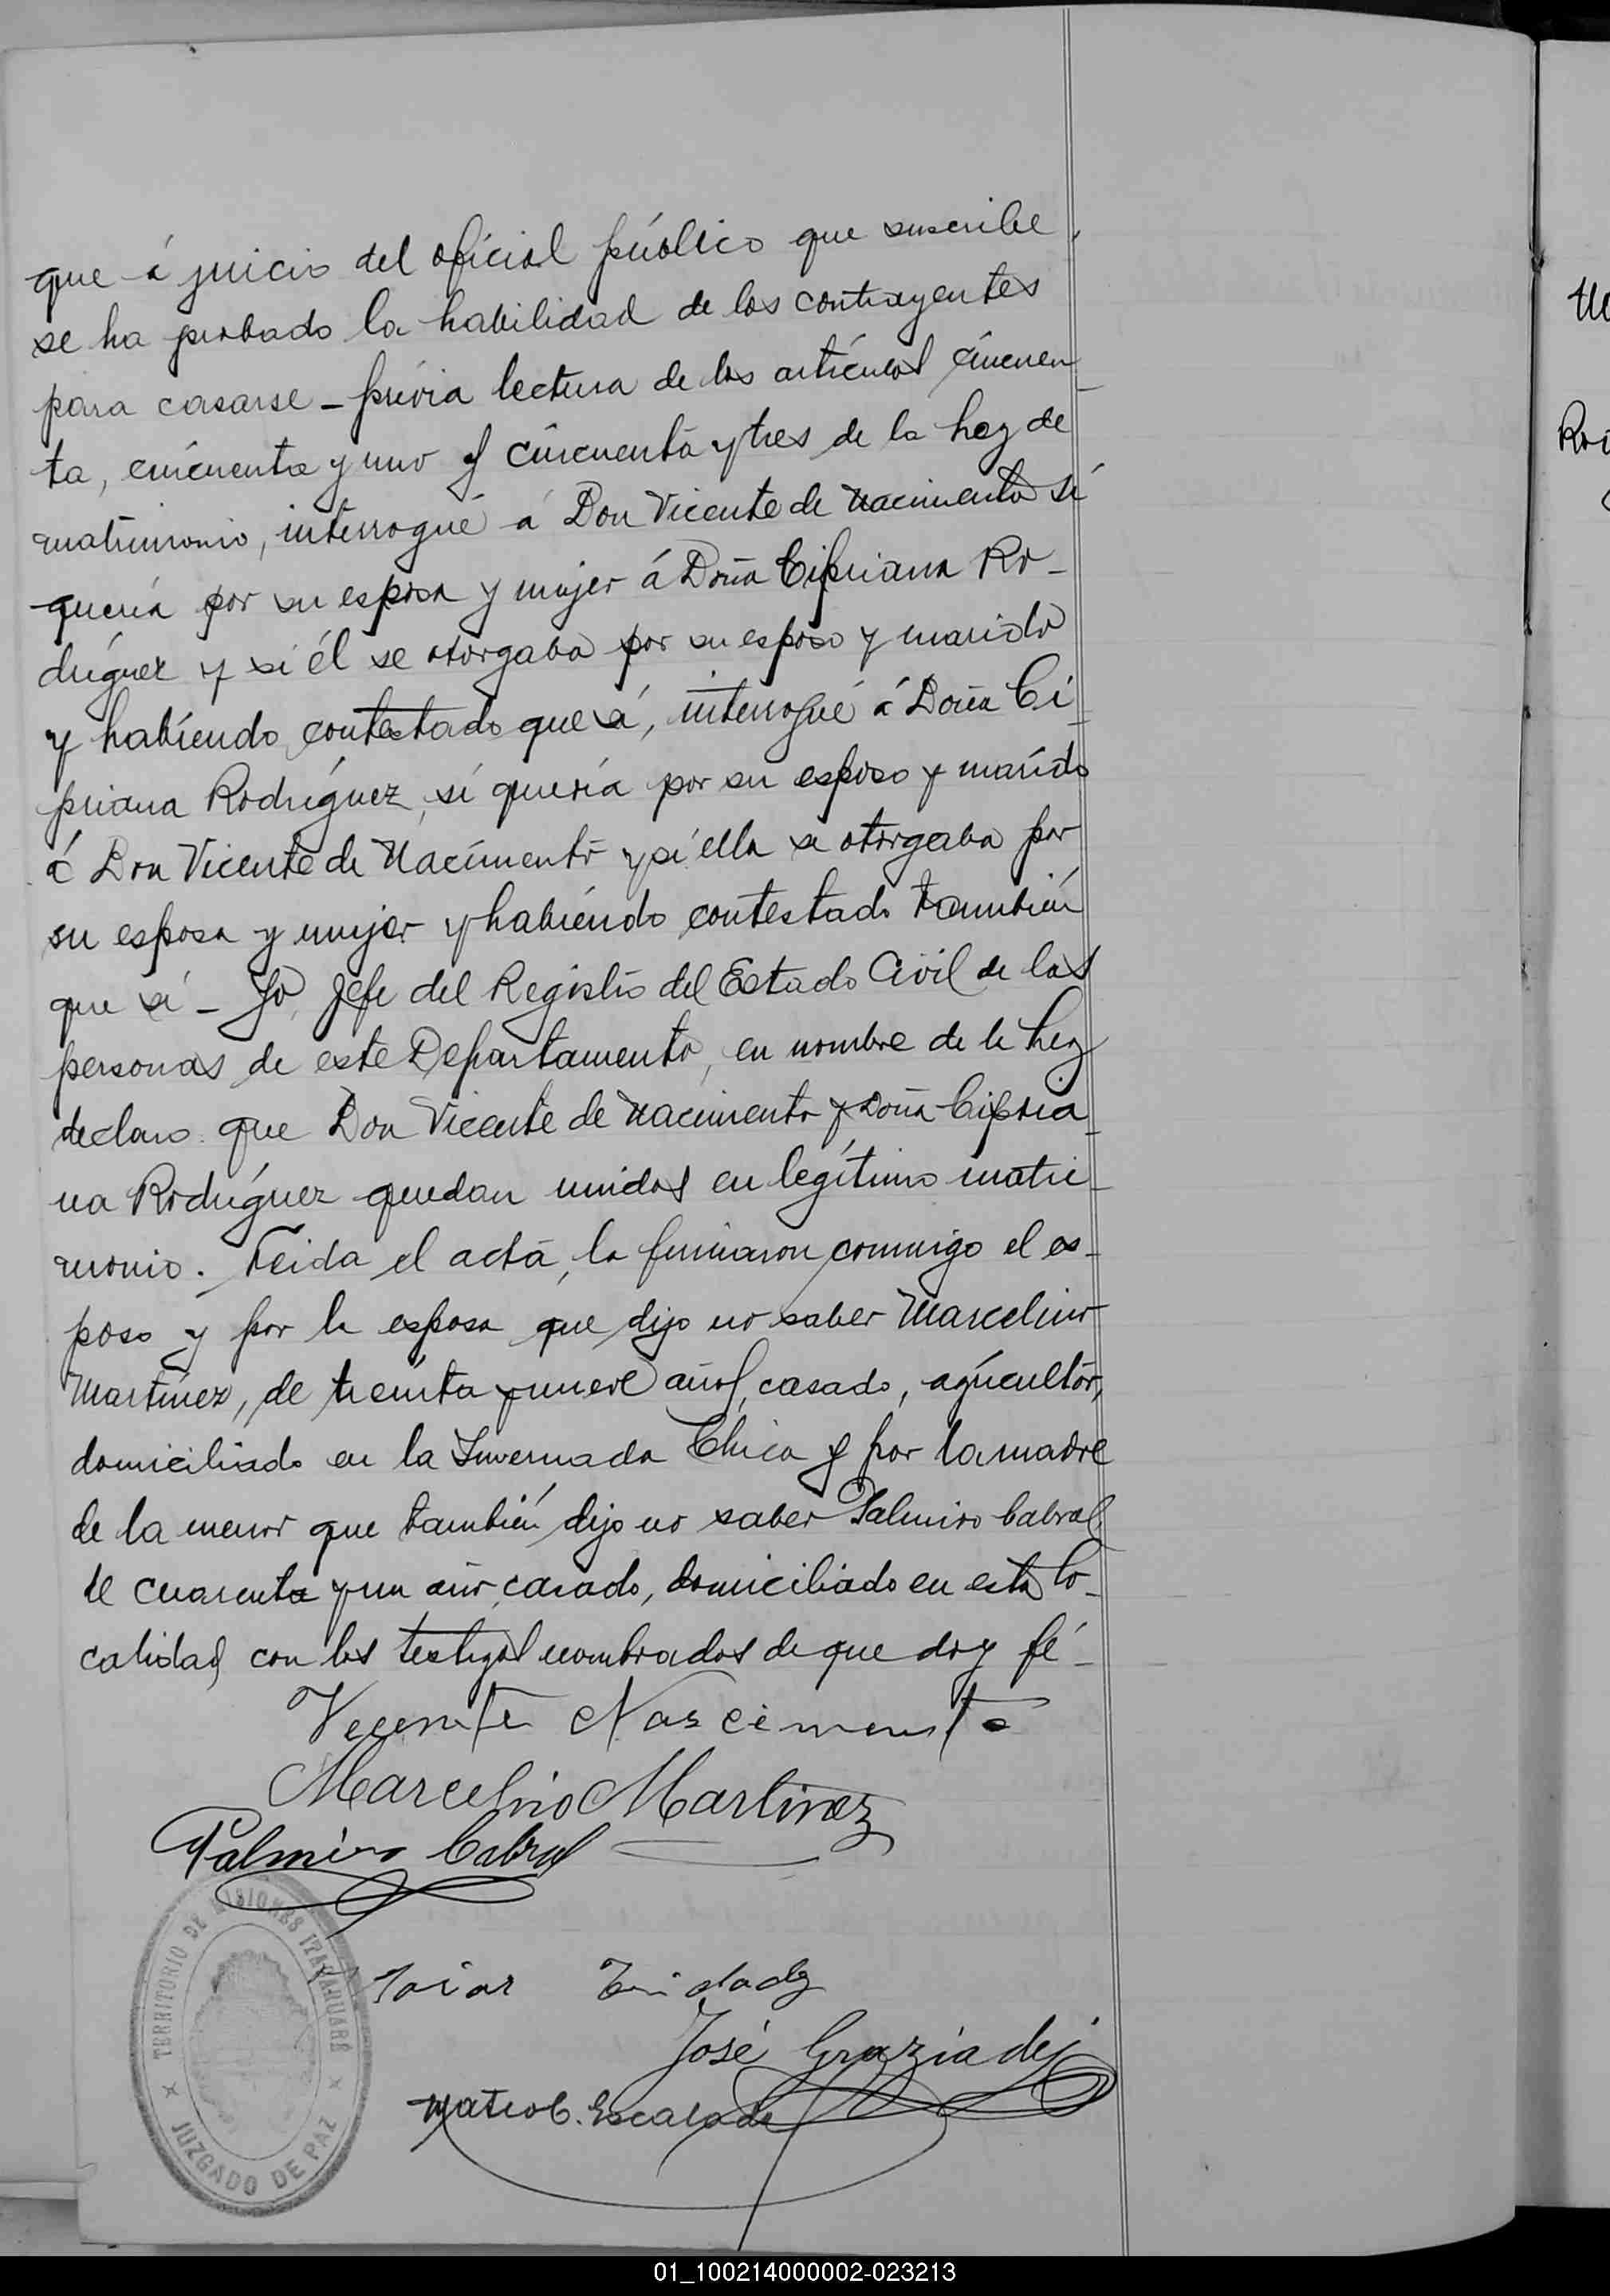 que á juicio del oficial público que suscribe,
se ha probado la habilidad de los contrayentes
para casarse - prévia lectura de los artículos cincuen
ta, cincuenta y uno y cincuenta y tres de la Ley de
matrimonio, interrogué á Don Vicente de Nacimento sí
quería por su esposa y mujer á Doña Cipriana Ro-
dríguez y sí él se otorgaba por su esposo y marido
y habiendo contestado que sí, interrogué á Doña Ci-
priana Rodríguez, sí quería por su esposo y marido
á Don Vicente de Nacimento y sí ella se otorgaba por
su esposa y mujer y habiendo contestado también
que sí - Yo, Jefe del Registro del Estado Civil de las
personas de este Departamento, en nombre de la Ley
declaro que Don Vicente de Nacimento y Doña Cipria-
na Rodríguez quedan unidos en legítimo matri-
monio. Leida el acta, la firmaron conmigo el es-
poso y por la esposa que dijo no saber Marcelino
Martínez, de treinta y nueve años, casado, agricultor,
domiciliado en la Invernada Chica y por la madre
de la menor que también dijo no saber Palmiro Cabral,
de cuarenta y un año, casado, domiciliado en esta lo-
calidad, con los testigos nombrados de que doy fé -
Vecente Nascimento
Marcelino Martinez
Palmiro Cabral
José Graziadej
Mateo C. Escalada
TERRITORIO DE MISIONES
JUZGADO DE PAZ
Ro
01_100214000002-023213